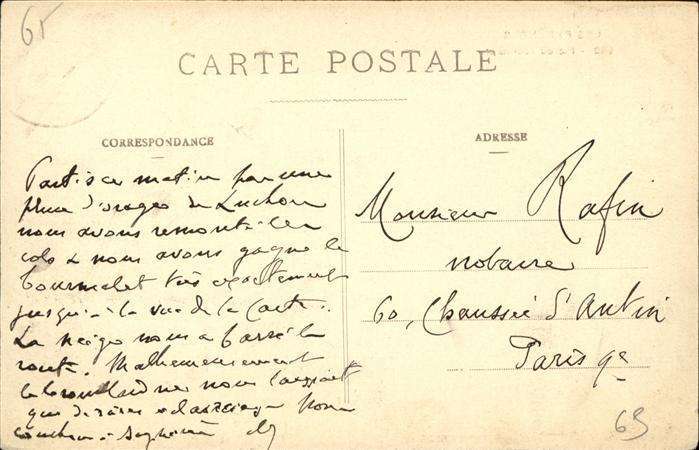 65
CARTE POSTALE
CORRESPONDANCE
Partis ce matin par une
pluie d'orages de Luchon
nous avons remonté les
cols & nous avons gagné le
Tourmalet très exactement
jusqu'à la vue de la carte.
La neige nous a barré la
route. Malheureusement
le brouillard ne nous laissait
que de rares éclaircies. Nous
couchons à
ADRESSE
Monsieur Rafin
notaire
60, Chaussée d'Antin
Paris 9e
65